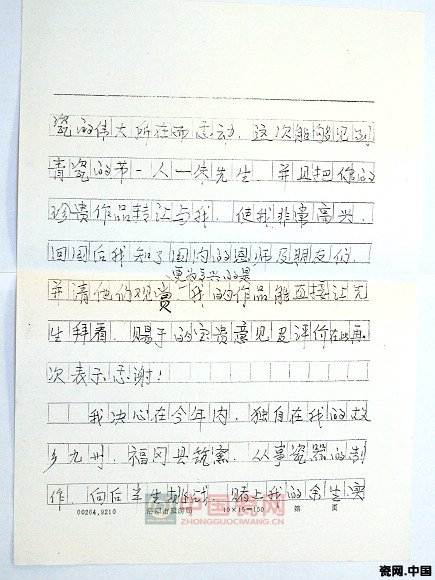 瓷的伟大所在而感动。这次能够见到
青瓷的第一人一朱先生。并且把你的
珍贵作品转让与我。使我非常高兴。
回国后我知了国内的恩师及朋友们。
更为高兴的是
并请他们观赏 我的作品能直接让先
生拜看。赐于的宝贵意见及评价在此再
次表示感谢!
我决心在今年内,独自在我的故
乡九州,福冈县筑窑。从事瓷器的制
作。向后半生挑战。赌上我的余生
00264.9210
10×15=150
第 页
中国瓷网
ZHONGGUOCIWANG.CN
瓷网.中国